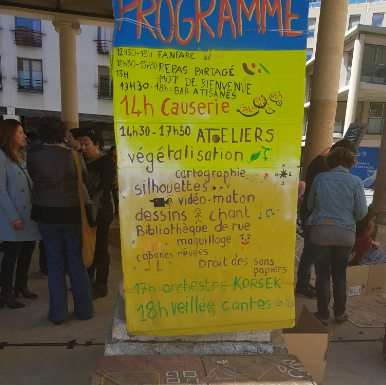 PROGRAMME
12H30-13H FANFARE
12H30-13H30 REPAS PARTAGÉ
13H MOT DE BIENVENUE
13H30-18H BAR A TISANES
14h Causerie
14H30-17H30 ATELIERS
végétalisation
cartographie
silhouettes...
vidéo-maton
dessins chant
Bibliothèque de rue
maquillage
cabanes rêvées
Droit des sans
papiers
17h orchestre KORSÉK
18h veillée contes